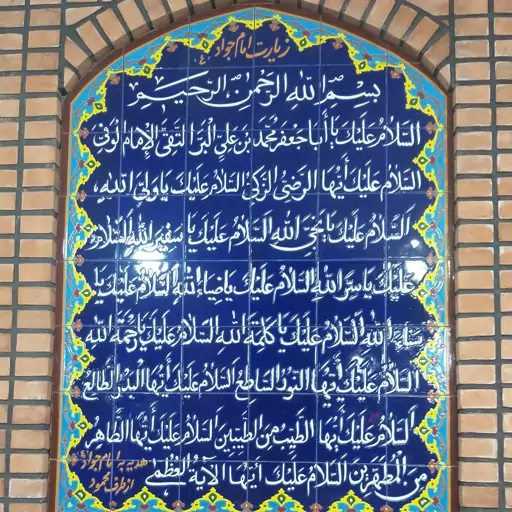 زیارت امام جواد ع
بسم الله الرحمن الرحیم
السلام علیک یا أبا جعفر محمد بن علی البر التقی الإمام الوفی
السلام علیک أیها الرضی الزکی السلام علیک یا ولی الله
السلام علیک یا نجی الله السلام علیک یا سفیر الله السلام
علیک یا سر الله السلام علیک یا ضیاء الله السلام علیک یا
سناء الله السلام علیک یا کلمة الله السلام علیک یا رحمة الله
السلام علیک أیها النور الساطع السلام علیک أیها البدر الطالع
السلام علیک أیها الطیب من الطیبین السلام علیک أیها الطاهر
من المطهرین السلام علیک أیها الآیة العظمی
هدیه به امام جواد ع
از طرف محمود